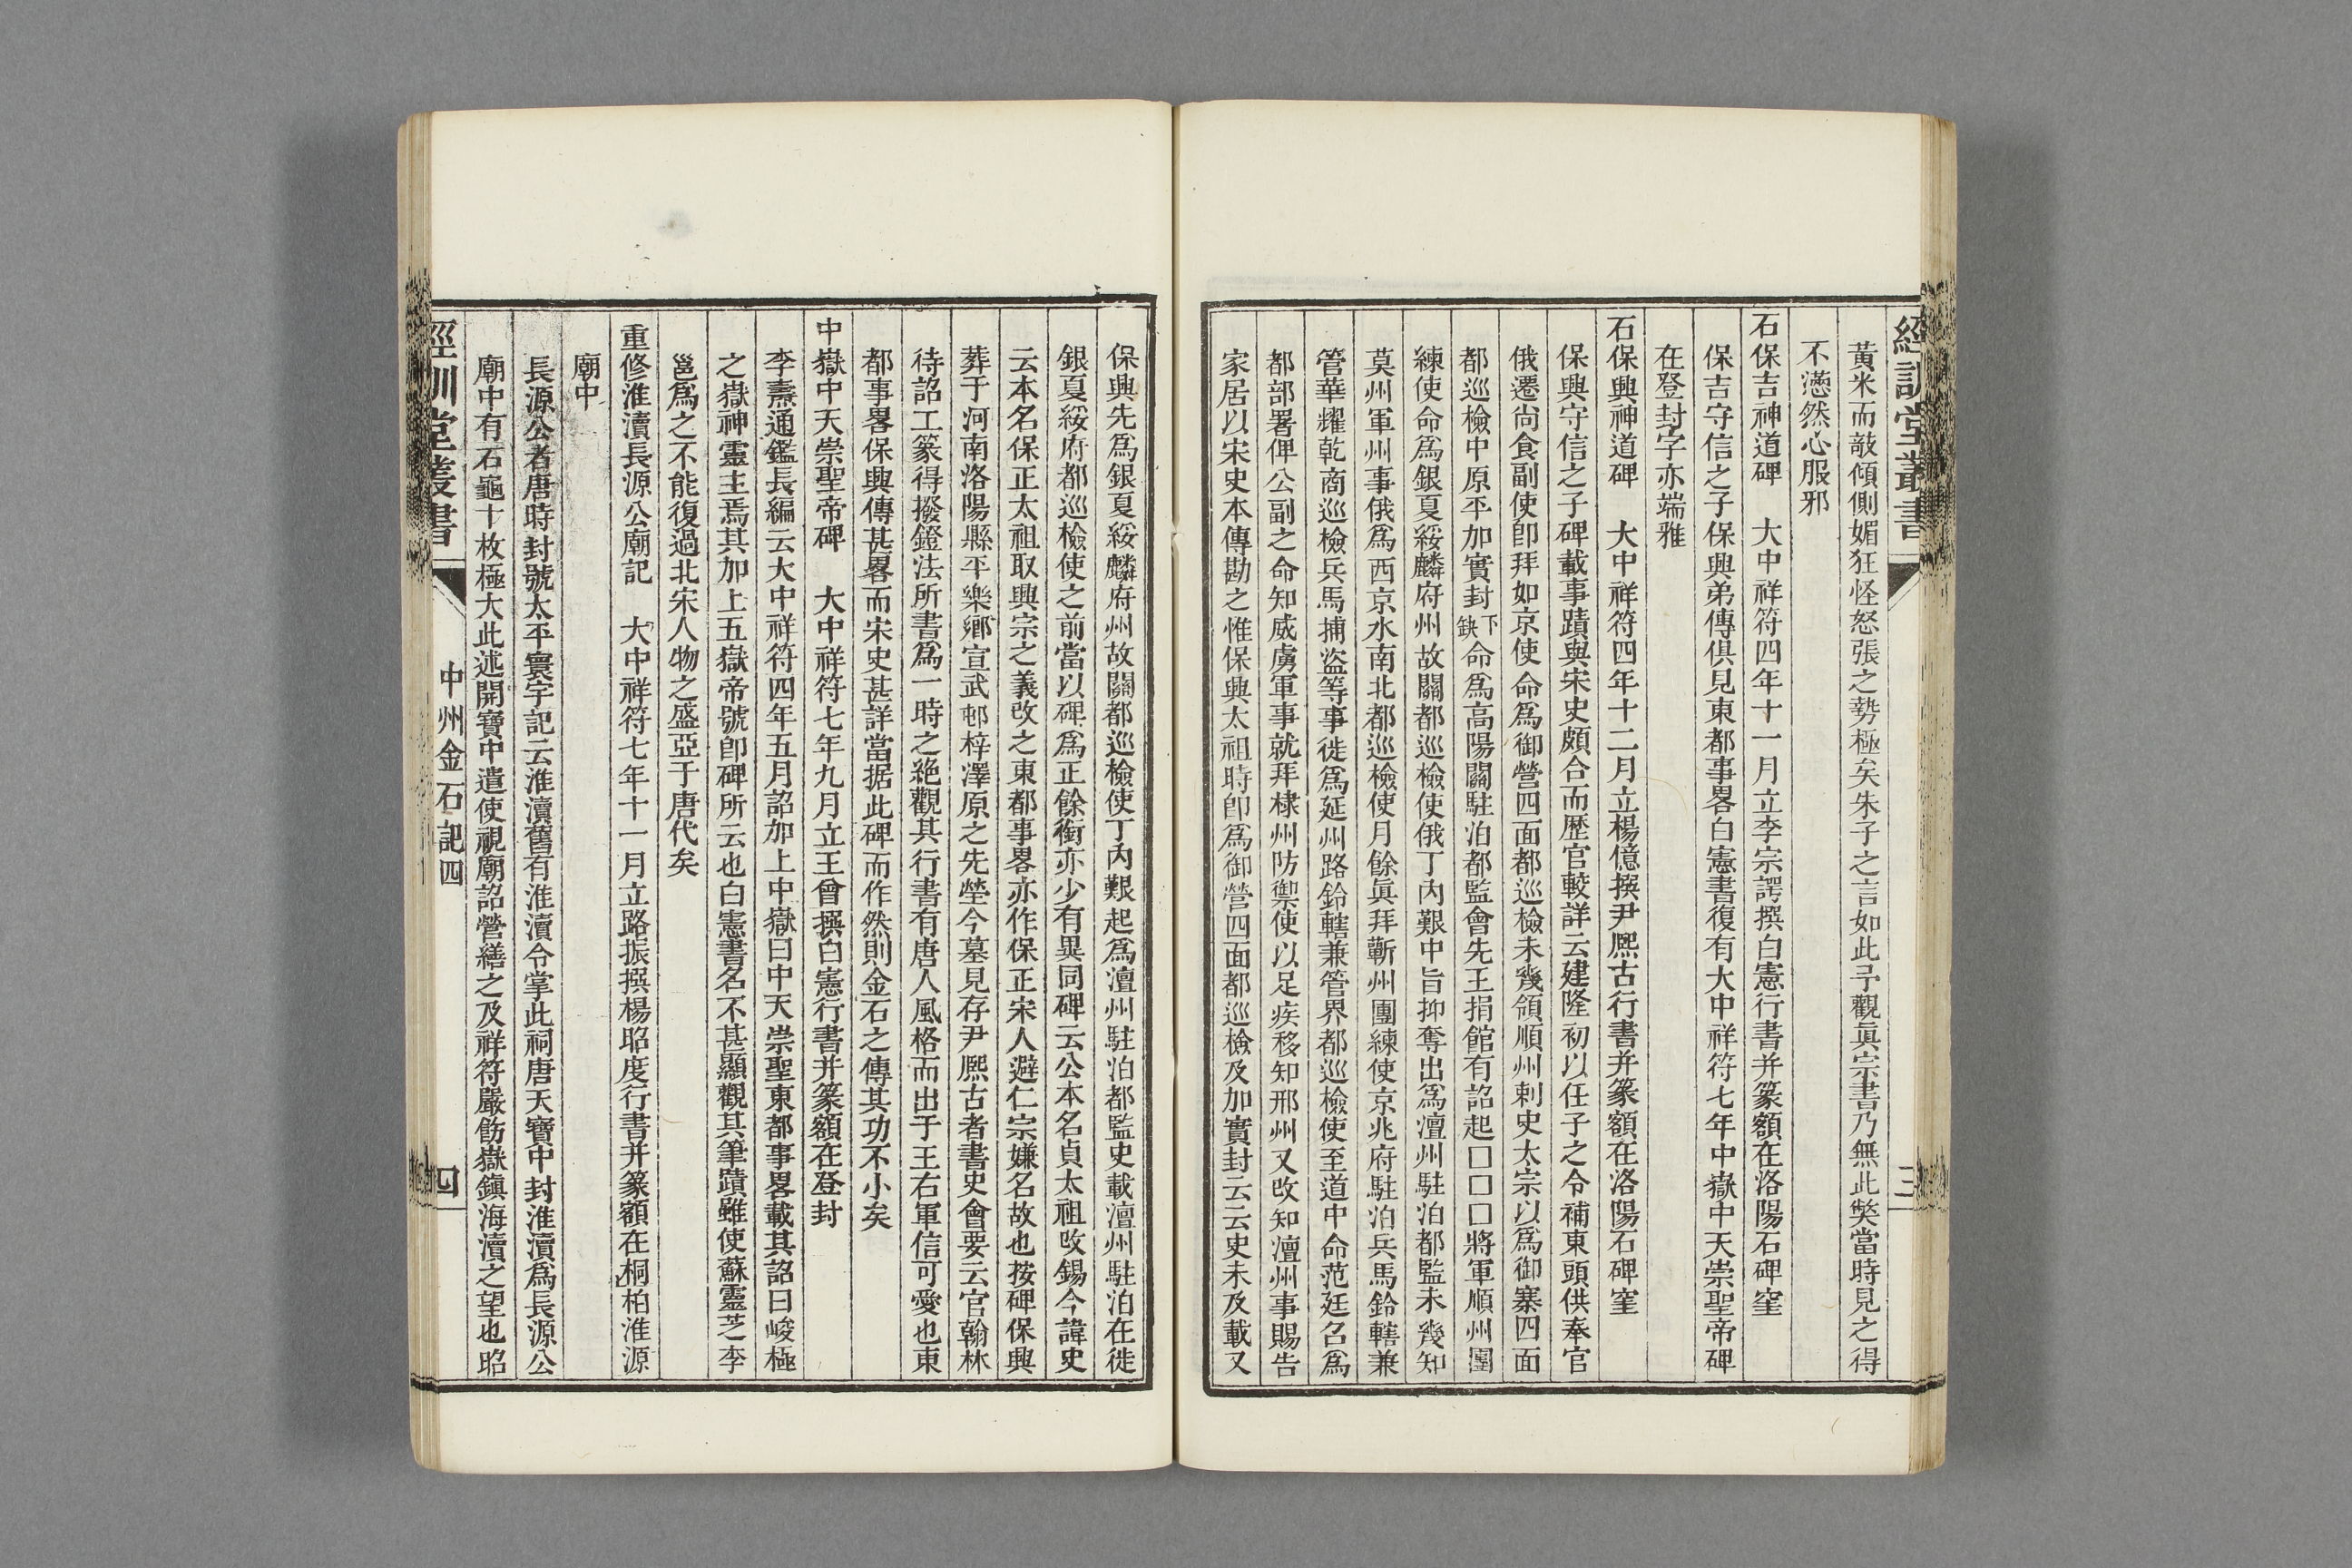 經訓堂叢書
三
黃米而敲傾側媚狂怪怒張之勢極矣朱子之言如此予觀眞宗書乃無此獘當時見之得
不懣然心服邪
石保吉神道碑　大中祥符四年十一月立李宗諤撰白憲行書并篆額在洛陽石碑窪
保吉守信之子保興弟傳俱見東都事畧白憲書復有大中祥符七年中嶽中天崇聖帝碑
在登封字亦端雅
石保興神道碑　大中祥符四年十二月立楊億撰尹熙古行書并篆額在洛陽石碑窪
保興守信之子碑載事蹟與宋史頗合而歷官較詳云建隆初以任子之令補東頭供奉官
俄遷尙食副使卽拜如京使命爲御營四面都巡檢未幾領順州刺史太宗以爲御寨四面
都巡檢中原平加實封下缺命爲高陽關駐泊都監會先王捐館有詔起□□□將軍順州團
練使命爲銀夏綏麟府州故關都巡檢使俄丁內艱中旨抑奪出爲澶州駐泊都監未幾知
莫州軍州事俄爲西京水南北都巡檢使月餘眞拜蘄州團練使京兆府駐泊兵馬鈐轄兼
管華耀乾商巡檢兵馬捕盜等事徙爲延州路鈐轄兼管界都巡檢使至道中命范廷召爲
都部署俾公副之命知威虜軍事就拜棣州防禦使以足疾移知邢州又改知澶州事賜告
家居以宋史本傳勘之惟保興太祖時卽爲御營四面都巡檢及加實封云云史未及載又
保興先爲銀夏綏麟府州故關都巡檢使丁內艱起爲澶州駐泊都監史載澶州駐泊在徙
銀夏綏府都巡檢使之前當以碑爲正餘銜亦少有異同碑云公本名貞太祖改錫今諱史
云本名保正太祖取興宗之義改之東都事畧亦作保正宋人避仁宗嫌名故也按碑保興
葬于河南洛陽縣平樂鄉宣武邨梓澤原之先塋今墓見存尹熙古者書史會要云官翰林
待詔工篆得撥鐙法所書爲一時之絶觀其行書有唐人風格而出于王右軍信可愛也東
都事畧保興傳甚畧而宋史甚詳當据此碑而作然則金石之傳其功不小矣
中嶽中天崇聖帝碑　大中祥符七年九月立王曾撰白憲行書并篆額在登封
李燾通鑑長編云大中祥符四年五月詔加上中嶽曰中天崇聖東都事畧載其詔曰峻極
之嶽神靈主焉其加上五嶽帝號卽碑所云也白憲書名不甚顯觀其筆蹟雖使蘇靈芝李
邕爲之不能復過北宋人物之盛亞于唐代矣
重修淮瀆長源公廟記　大中祥符七年十一月立路振撰楊昭度行書并篆額在桐柏淮源
廟中
長源公者唐時封號太平寰宇記云淮瀆舊有淮瀆令掌此祠唐天寶中封淮瀆爲長源公
廟中有石龜十枚極大此述開寶中遣使視廟詔營繕之及祥符嚴飭嶽鎭海瀆之望也昭
經訓堂叢書
中州金石記四
四